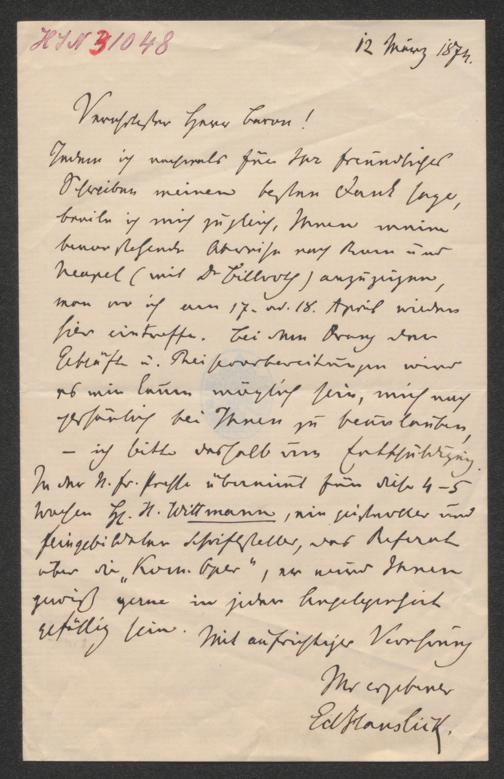 HIN 31048
12 März 1874.
Verehrtester Herr Baron!
Indem ich nochmals für Ihr freundliches
Schreiben meinen besten Dank sage,
beeile ich mich zugleich, Ihnen meine
bevorstehende Abreise nach Rom und
Neapel (mit Dr Billroth) anzuzeigen,
von wo ich am 17. od. 18. April wieder
hier eintreffe. Bei dem Drang der
Geschäfte u. Reisevorbereitungen wird
es mir kaum möglich sein, mich noch
persönlich bei Ihnen zu beurlauben,
– ich bitte deshalb um Entschuldigung.
In der N. fr. Presse übernimt für diese 4–5
Wochen H. Wittmann, ein geistvoller und
feingebildeter Schriftsteller, das Referat
über die „Kom. Oper", er wird Ihnen
gewiß gerne in jeder Angelegenheit
gefällig sein. Mit aufrichtiger Verehrung
Ihr ergebener
Ed Hanslick.